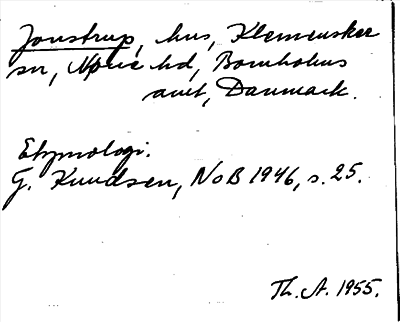 Jonstrup, hus, Klemensker
sn, Nørre hd, Bornholms
amt, Danmark.
Etymologi.
G. Knudsen, NoB 1946, s. 25.
Th. A. 1955.